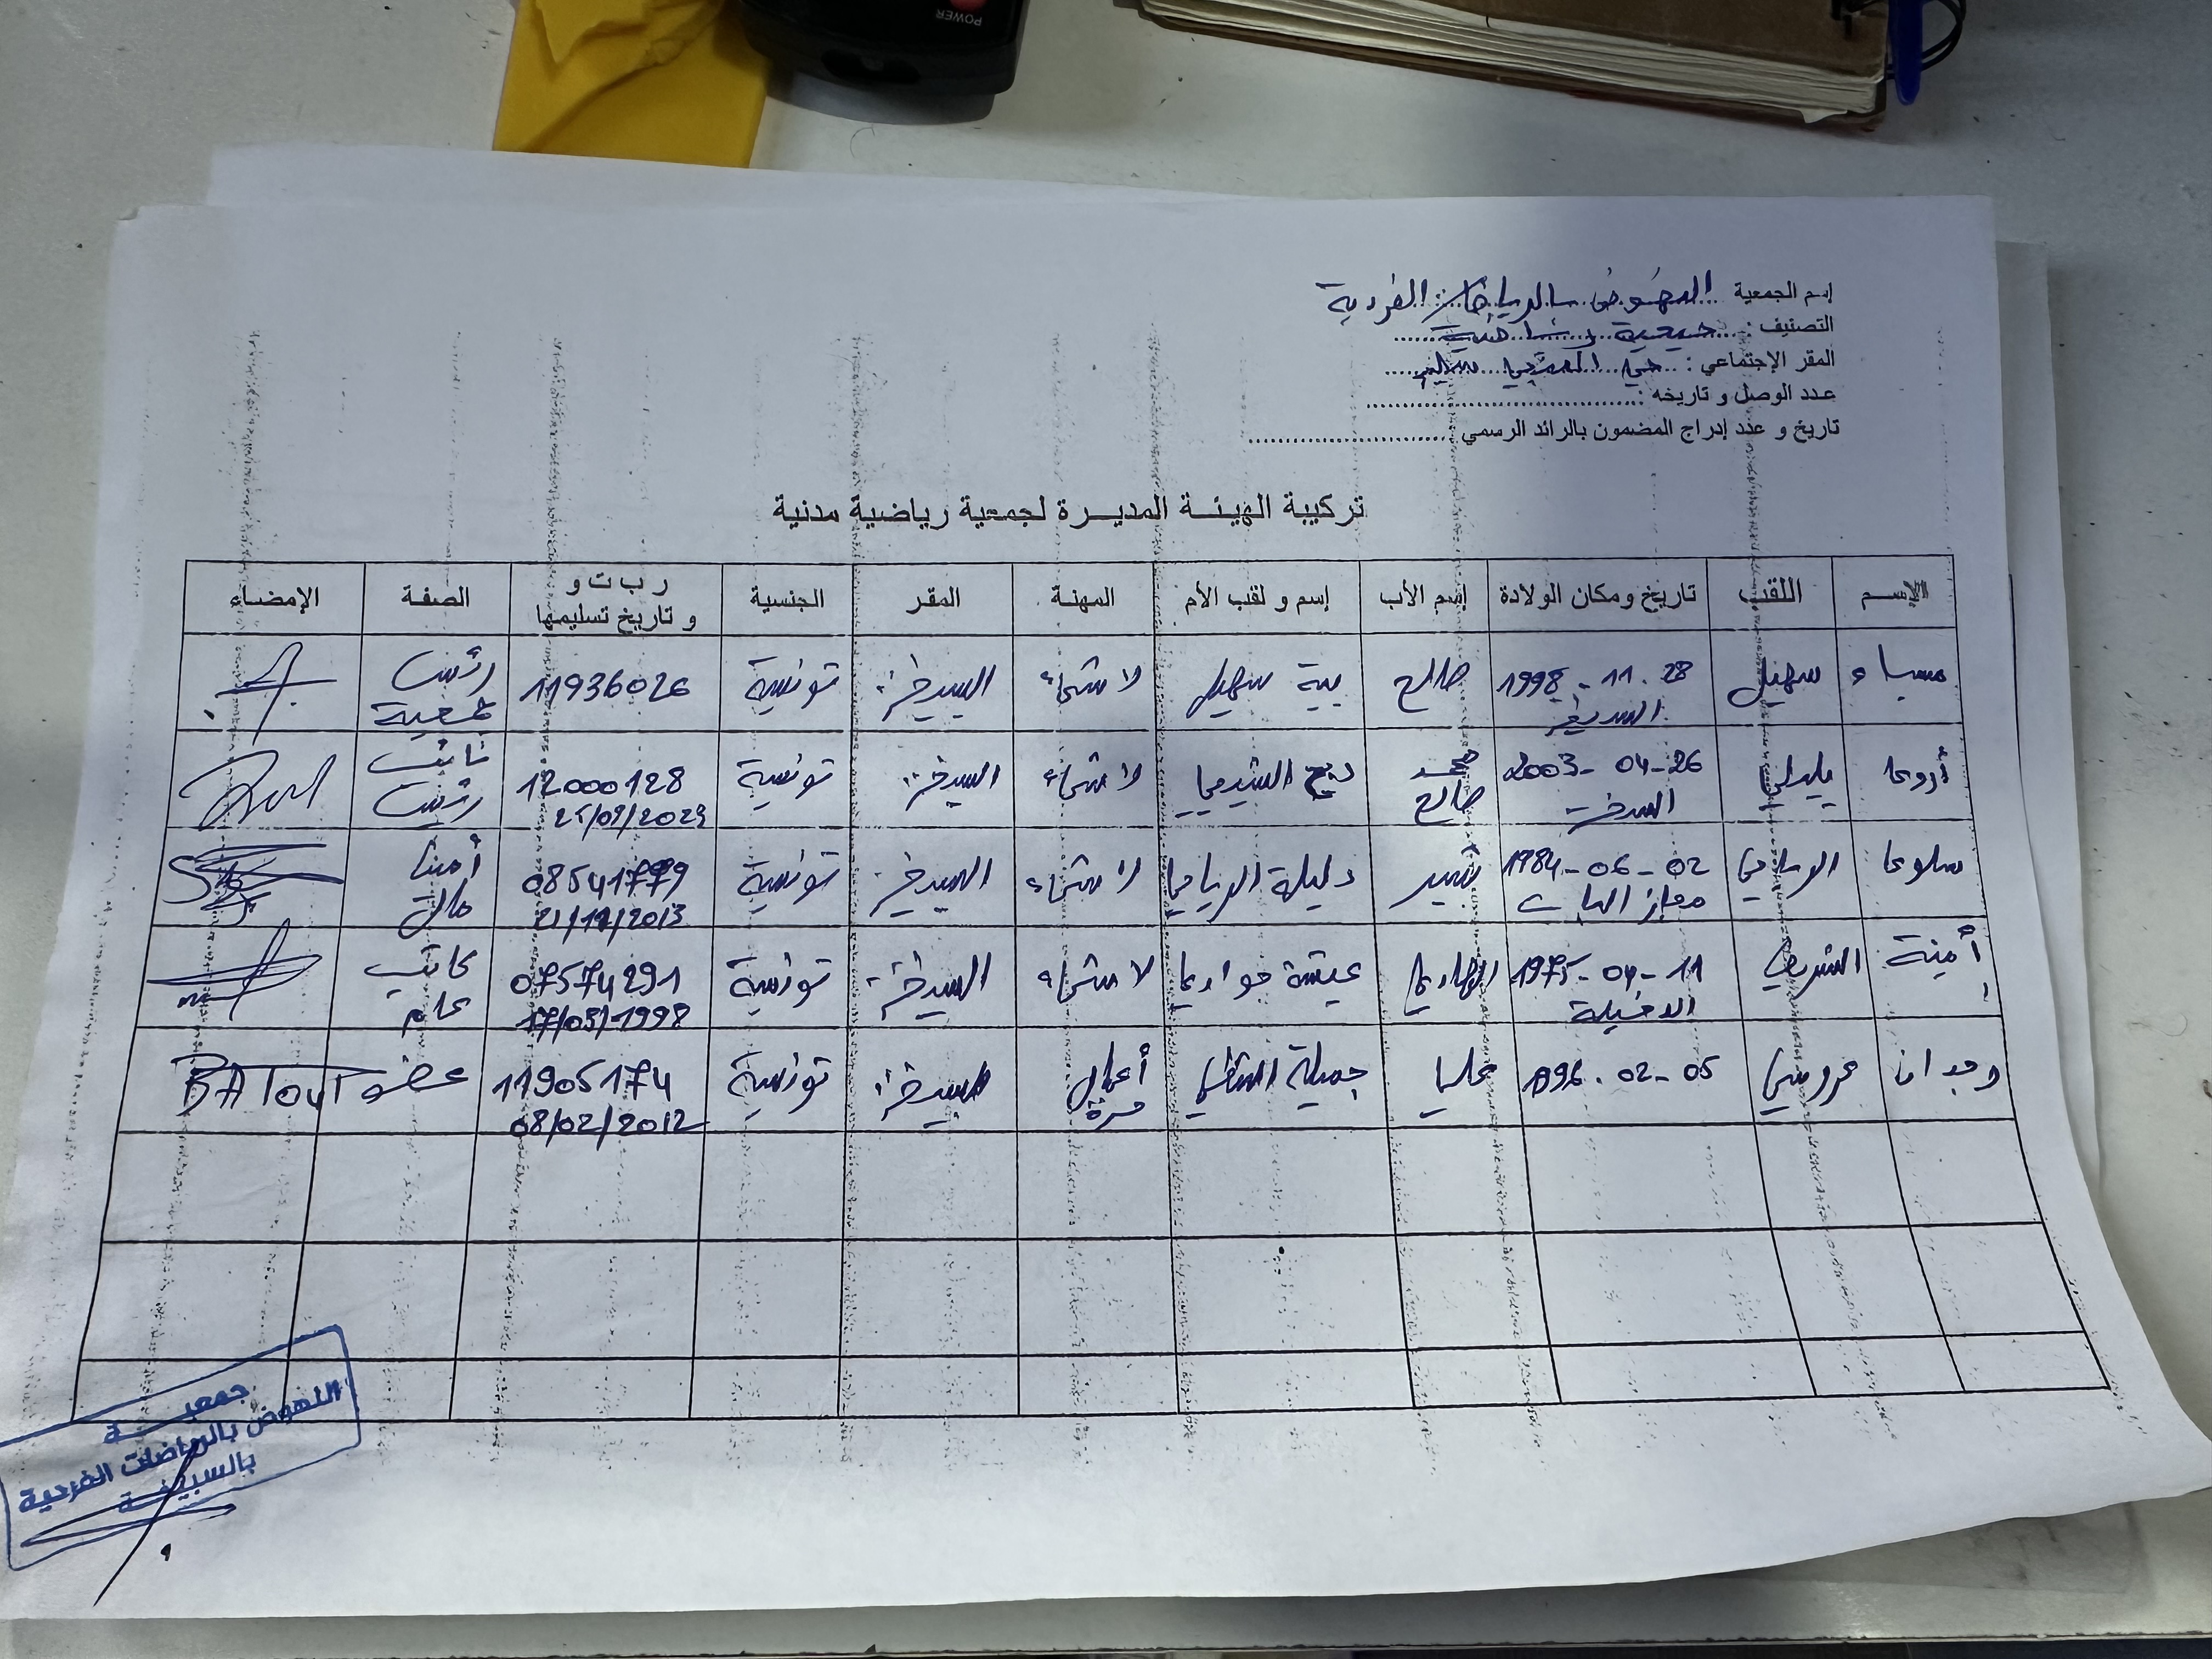 POWER
إسم الجمعية النهوض بالرياضات الفردية
التصنيف : جمعية رياضية
المقر الإجتماعي : حي المنجي سليم
عدد الوصل و تاريخه :
تاريخ و عدد إدراج المضمون بالرائد الرسمي
تركيبة الهيئة المديرة لجمعية رياضية مدنية
الإسم اللقب تاريخ ومكان الولادة إسم الأب إسم و لقب الأم المهنة المقر الجنسية ر ب ت و و تاريخ تسليمها الصفة الإمضاء
ميساء سهيل 28 - 11 - 1998 صالح بية سهيل لا شيء تونسية 11936026 رئيس جمعية
أروى 26 - 04 - 2003 محمد صالح ربح لا شيء تونسية 12000128 نائب رئيس
سلوى الرياحي 02 - 06 - 1984 مجاز الباب بشير دليلة الرياحي لا شيء تونسية 08541779 أمين مال
أمينة الشريف 11 - 04 - 1975 عيشة لا شيء تونسية 07574291 17/03/1998 كاتب عام
وجدان عروسي 05 - 02 - 1996 علي جميلة أعمال حرة تونسية 11905174 08/02/2012 عضو
جمعيـــة
النهوض بالرياضات الفردية
بالسبيخـة